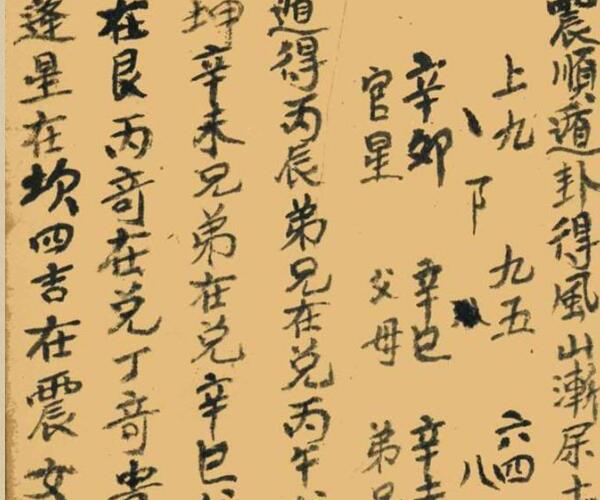 震順遁卦得風山漸尿
上九 九五 六四
丶 卩 八
辛卯 辛巳 辛
官星 父母 弟兄
遁得丙辰弟兄在兑丙午
坤辛未兄弟在兑辛巳
在艮丙奇在兑丁奇
逢星在坎四吉在震女